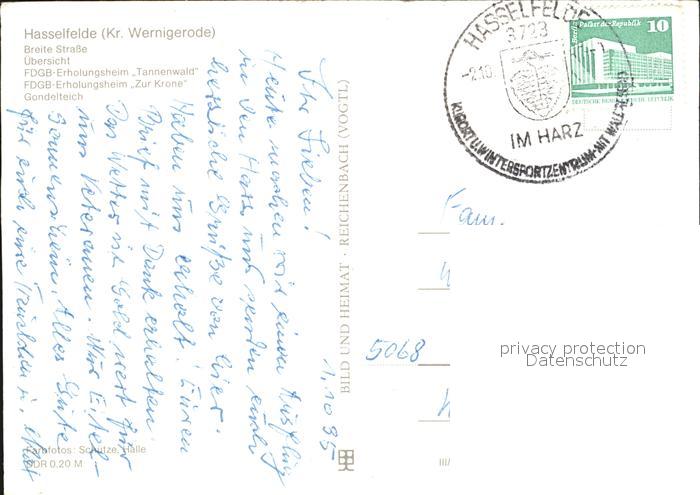 Hasselfelde (Kr. Wernigerode)
Breite Straße
Übersicht
FDGB-Erholungsheim „Tannenwald"
FDGB-Erholungsheim „Zur Krone"
Gondelteich
Farbfotos: Schütze, Halle
DDR 0,20 M
1.10.85
Ihr Lieben!
Heute machen wir einen Ausflug
in den Harz und senden euch
herzliche Grüße von hier.
Haben uns erholt. Euren
Brief mit Dank erhalten.
Das Wetter ist Gold wert für
uns Veteranen. Nur
Sonnenschein. Alles Gute
für euch
BILD UND HEIMAT · REICHENBACH (VOGTL)
HASSELFELDE
3723
-2.10.
IM HARZ
KURORT U. WINTERSPORTZENTRUM MIT
Berlin, Palast der Republik
10
DEUTSCHE DEMOKRATISCHE REPUBLIK
Fam.
5068
privacy protection
Datenschutz
III/